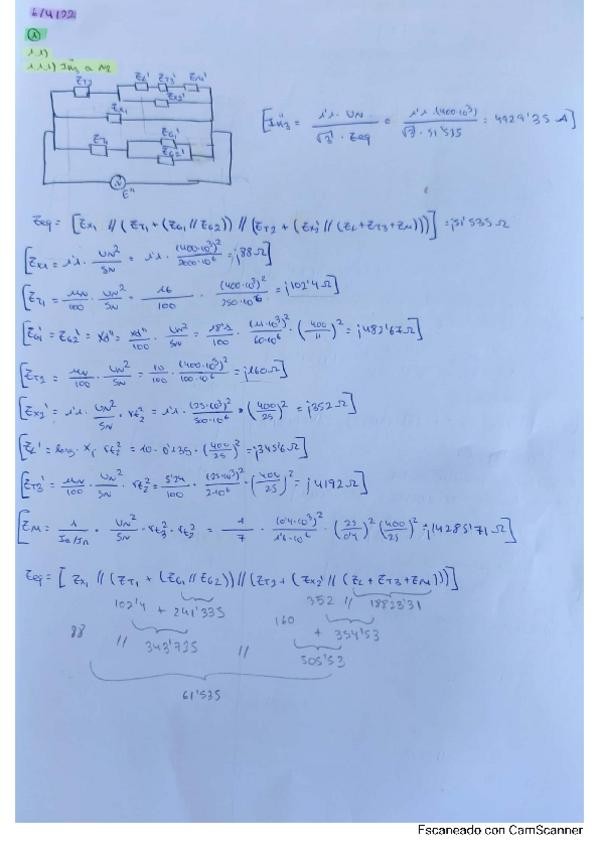 6/4/22
①
1.1)
1.1.1) I"k3 a N2
ZT2 ZL' ZT3' ZM'
ZX2'
ZX1
ZT1 ZG1'
ZG2'
E"
[I"k3 = 1'1 · UN / √3 · Zeq = 1'1 · (400·10³) / √3 · 51'535 = 4929'35 A]
Zeq = [ZX1 // (ZT1 + (ZG1 // ZG2)) // (ZT2 + (ZX2' // (ZL + ZT3 + ZM)))] = j51'535 Ω
[ZX1 = 1'1 · UN²/SN = 1'1 · (400·10³)²/2000·10⁶ = j88 Ω]
[ZT1 = μN/100 · UN²/SN = 16/100 · (400·10³)²/250·10⁶ = j102'4 Ω]
[ZG1' = ZG2' = Xd" = Xd"/100 · UN²/SN = 18'1/100 · (11·10³)²/60·10⁶ · (400/11)² = j482'67 Ω]
[ZT2 = μN/100 · UN²/SN = 10/100 · (400·10³)²/100·10⁶ = j160 Ω]
[ZX2' = 1'1 · UN²/SN · rt2² = 1'1 · (25·10³)²/500·10⁶ · (400/25)² = j352 Ω]
[ZL' = long · XL · rt2² = 10 · 0'135 · (400/25)² = j345'6 Ω]
[ZT3' = μN/100 · UN²/SN · rt2² = 5'24/100 · (25·10³)²/2·10⁶ · (400/25)² = j4192 Ω]
[ZM = 1/Ia/In · UN²/SN · rt3² · rt2² = 1/7 · (0'4·10³)²/1'6·10⁶ · (25/0'4)² (400/25)² = j14285'71 Ω]
Zeq = [ZX1 // (ZT1 + (ZG1 // ZG2)) // (ZT2 + (ZX2' // (ZL + ZT3 + ZM)))]
102'4 + 241'335 352 // 18823'31
88 // 343'735 // 160 + 354'53
505'53
61'535
Escaneado con CamScanner